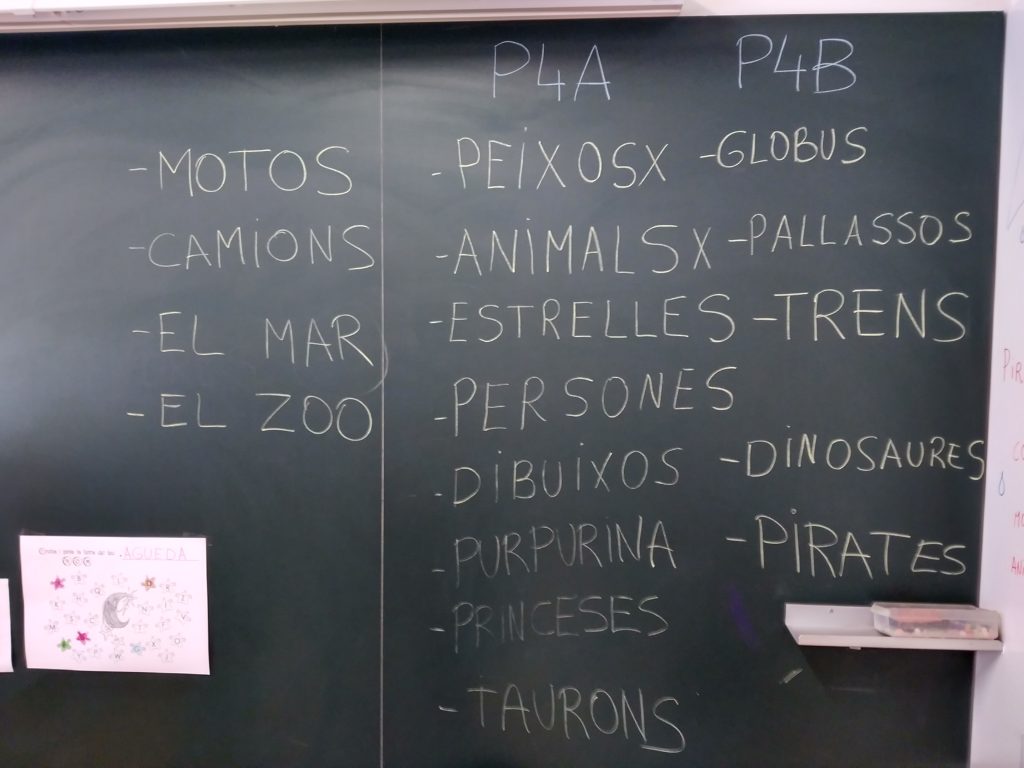 P4A P4B
-MOTOS -PEIXOSX -GLOBUS
-CAMIONS -ANIMALS X -PALLASSOS
-EL MAR -ESTRELLES -TRENS
-EL ZOO -PERSONES
-DIBUIXOS -DINOSAURES
-PURPURINA -PIRATES
-PRINCESES
-TAURONS
AGUEDA